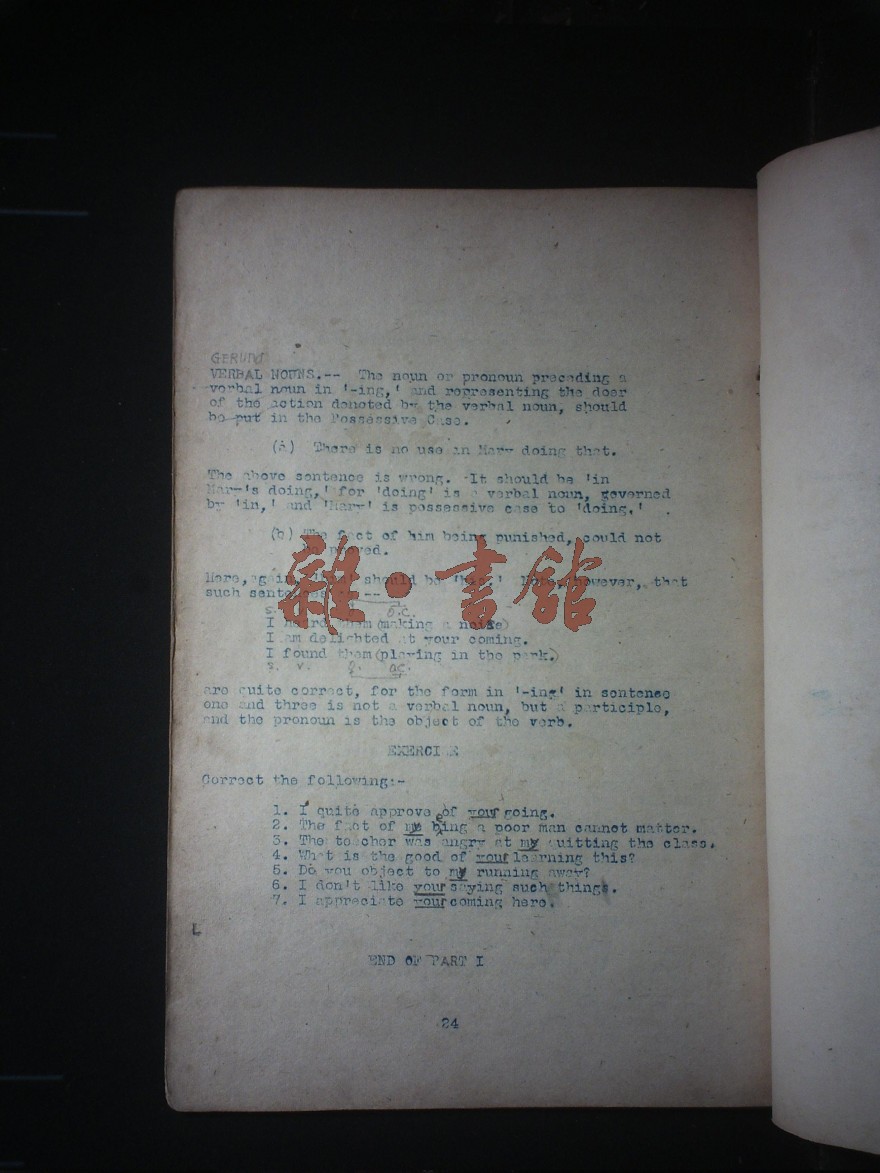 GERUND
VERBAL NOUNS.-- The noun or pronoun preceding a
verbal noun in '-ing,' and representing the doer
of the action denoted by the verbal noun, should
be put in the Possessive Case.
(a) There is no use in Mary doing that.
The above sentence is wrong. It should be 'in
Mary's doing,' for 'doing' is a verbal noun, governed
by 'in,' and 'Mary' is possessive case to 'doing.'
(b) The fact of him being punished, could not
be proved.
Here, again, 'him' should be 'his.' Note, however, that
such sentences as --
s. o.c.
I heard them (making a noise)
I am delighted at your coming.
I found them (playing in the park.)
s. v. o. oc.
are quite correct, for the form in '-ing' in sentence
one and three is not a verbal noun, but a participle,
and the pronoun is the object of the verb.
EXERCISE
Correct the following:-
1. I quite approve of your going.
2. The fact of my being a poor man cannot matter.
3. The teacher was angry at my quitting the class.
4. What is the good of your learning this?
5. Do you object to my running away?
6. I don't like your saying such things.
7. I appreciate your coming here.
END OF PART I
24
雜·書館